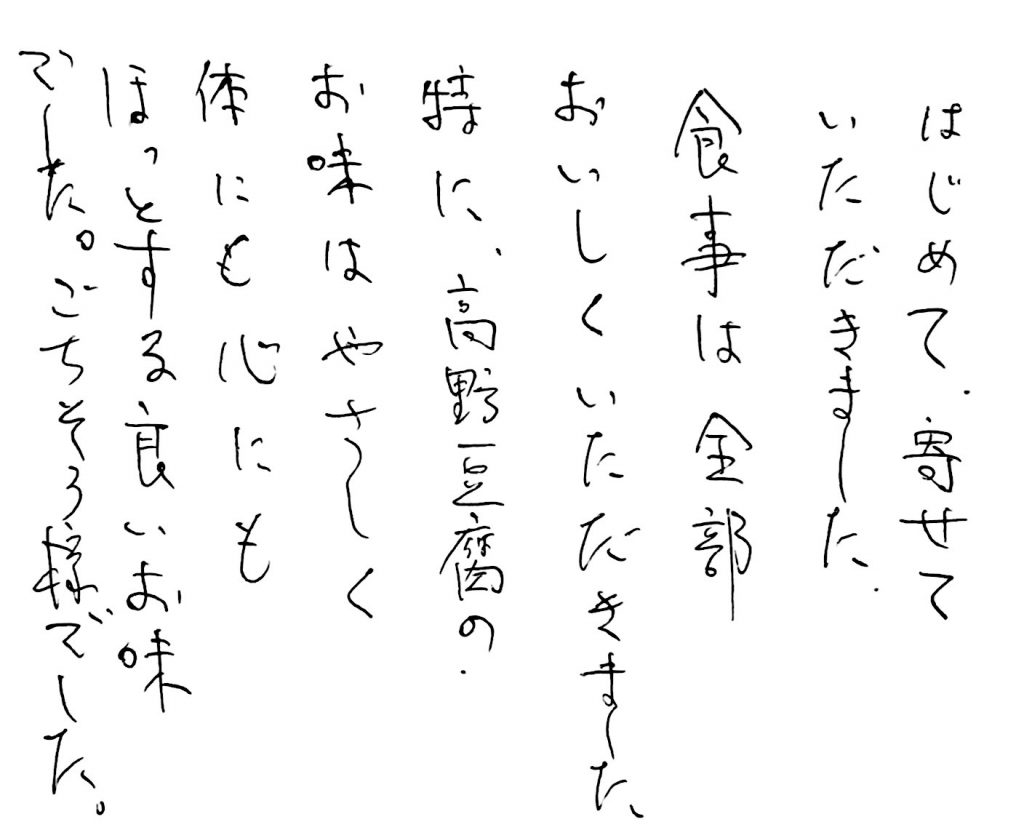 はじめて、寄せて
いただきました。
食事は全部
おいしくいただきました、
特に、高野豆腐の
お味はやさしく
体にも心にも
ほっとする良いお味
でした。ごちそう様でした。